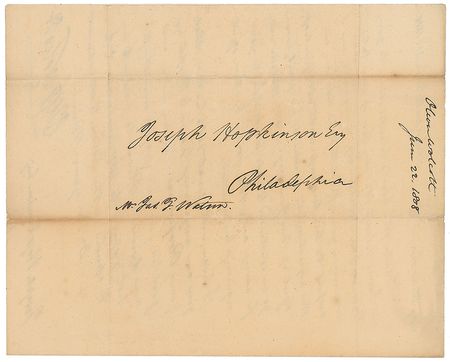 Joseph Hopkinson Esq
Philadephia
Mr. Jas. F. Watson.
Oliver Wolcott
June 22. 1808